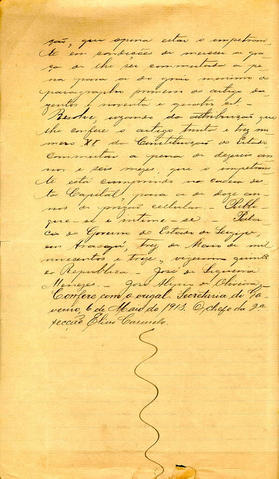 ção, que opina estar o impetran-
te em condições de merecer a gra-
ça de lhe ser commutada a pe-
na para a do gráo maximo do
paragrapho primeiro do artigo du-
zentos e noventa e quatro
Resolve, usando da attribuição que
lhe confere o artigo trinta e tres nu-
mero XV da Constituição do Estado
commutar a pena de dezeseis an-
nos e seis mezes, que o impetran-
te está cumprindo na cadeia des-
ta Capital, para a de doze an-
nos de prisão cellular. Publi-
que-se e intime-se. Pala-
cio do Governo do Estado de Sergipe,
em Aracajú, tres de Maio de mil
novecentos e treze, vigesimo quinto
da Republica. José de Siqueira
Menezes. José de Oliveira.
Confere com o original. Secretaria do Go-
verno, 6 de Maio de 1913. O chefe da 2ª
secção,